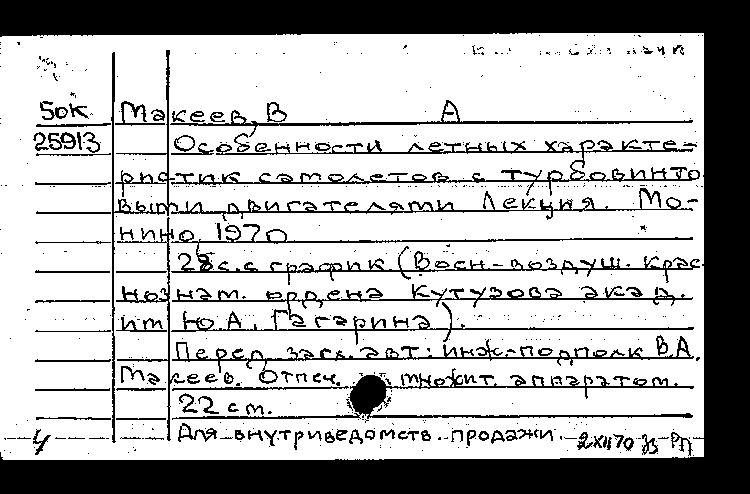 50к Макеев, В А
25913 Особенности летных характе=
ристик самолетов с турбовинто
выми двигателями Лекция. Мо-
нино, 1970
28с. с график (Воен-воздуш. крас
нознам. ордена Кутузова акад.
им Ю.А. Гагарина).
Перед загл. авт: инж-подполк В.А.
Макеев. Отпеч. множит. аппаратом.
22 см.
4 Для внутриведомств. продажи. РП